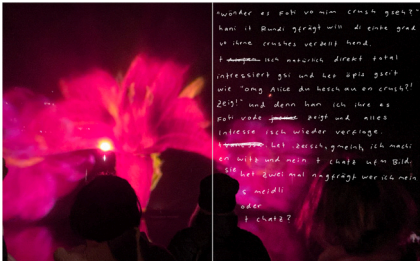 "wönder es Foti vo mim crush gseh?"
hani it Rundi gfrägt will di einte grad
vo ihrne crushes verzellt hend.
t isch natürlich direkt total
intressiert gsi und het öpis gseit
wie "omg Alice du hesch au en crush?!
Zeig!" und denn han ich ihre es
Foti vode zeigt und alles
intresse isch wieder verfloge.
t het zersch gmeint, ich machi
en witz und mein t chatz ufm Bild.
sie het zwei mal nagfrägt wer ich mein
s meidli
oder
t chatz?